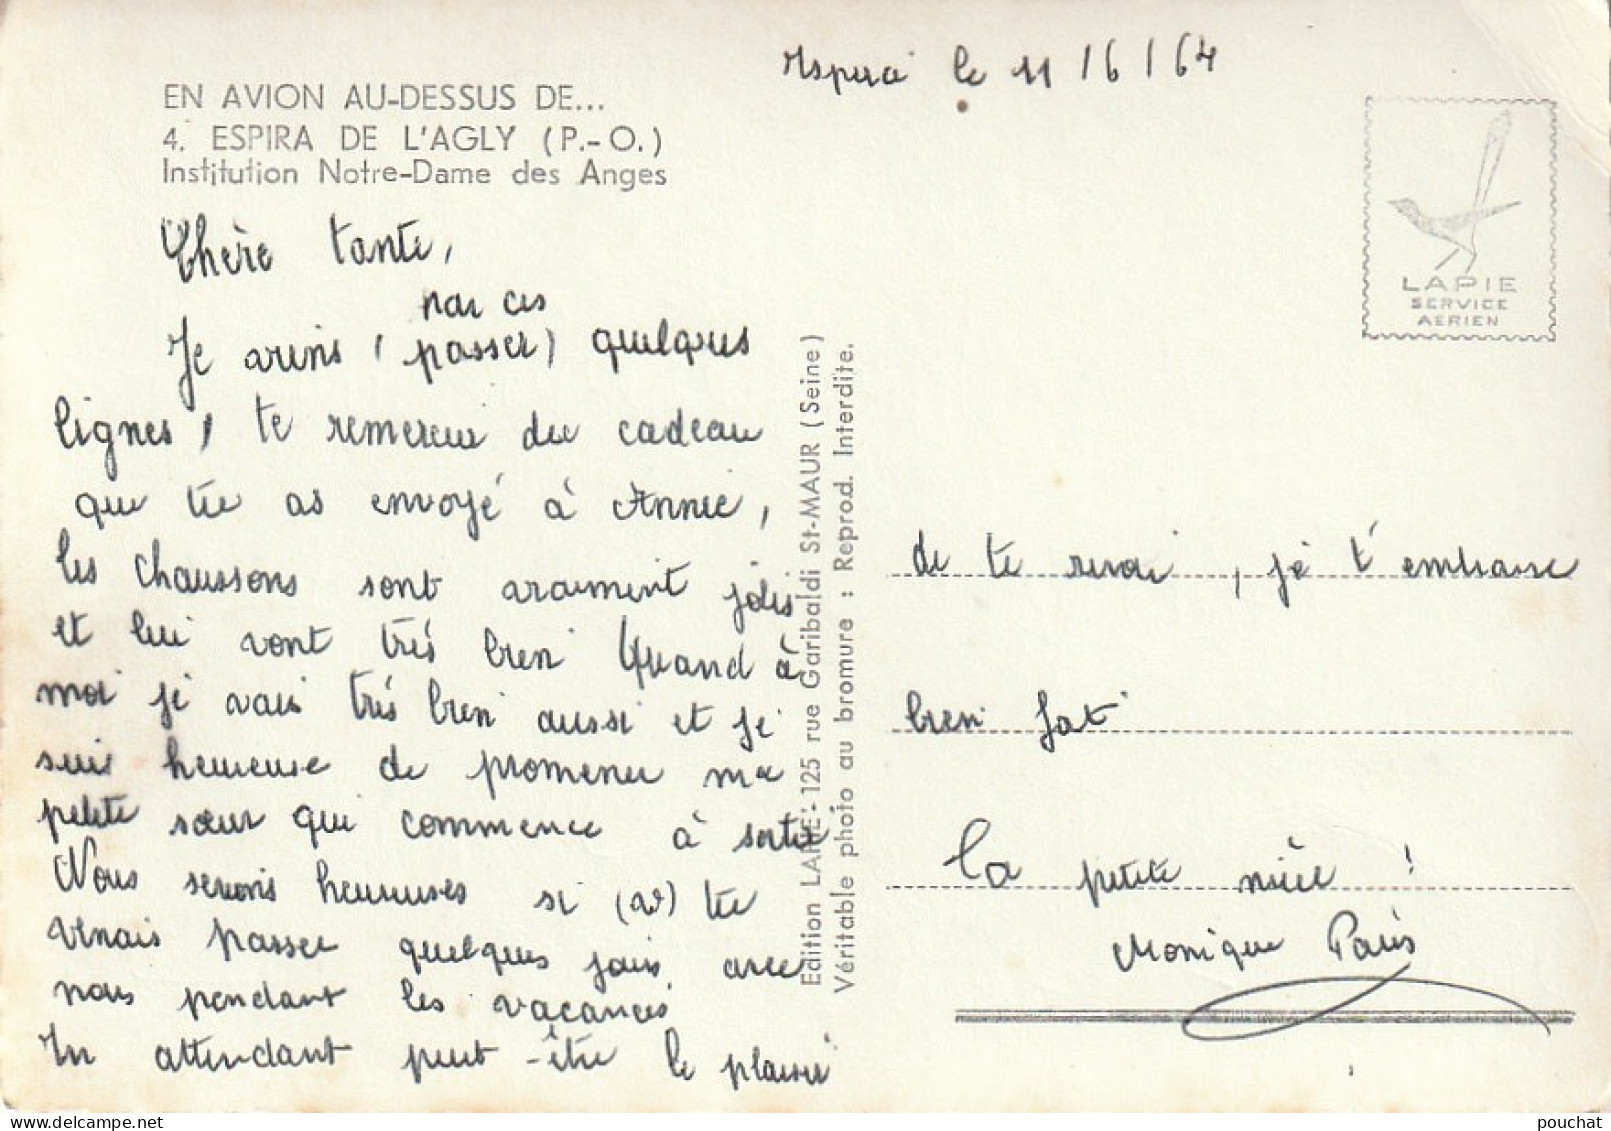 Espira le 11/6/64
EN AVION AU-DESSUS DE...
4. ESPIRA DE L'AGLY (P.-O.)
Institution Notre-Dame des Anges
LAPIE
SERVICE
AERIEN
Chère tante,
par ces
Je viens (passer) quelques
lignes, te remercier du cadeau
que tu as envoyé à Annie,
les chaussons sont vraiment jolis
et lui vont très bien Quand à
moi je vais très bien aussi et je
suis heureuse de promener ma
petite sœur qui commence à sortir
Nous serions heureuses si (av) tu
venais passer quelques jours avec
nous pendant les vacances
En attendant peut-être le plaisir
Edition LAPIE - 125 rue Garibaldi St-MAUR (Seine)
Véritable photo au bromure : Reprod. Interdite.
de te revoir, je t'embrasse
bien fort
Ta petite nièce !
Monique Paris
pouchat